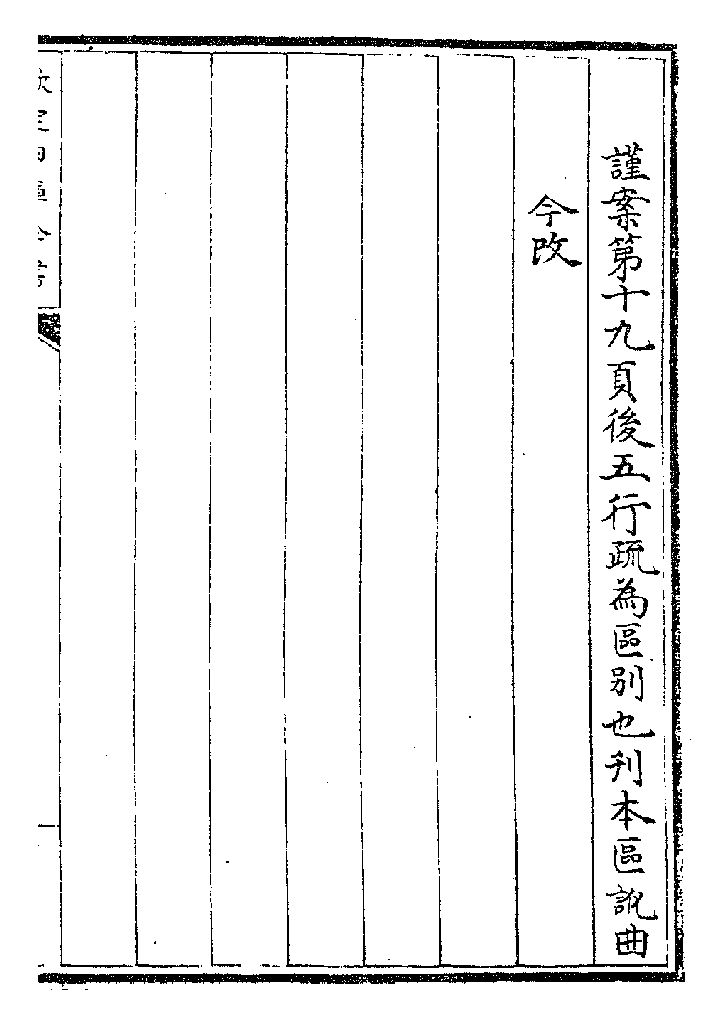 謹案第十九頁後五行疏為區别也刋本區訛曲
今改